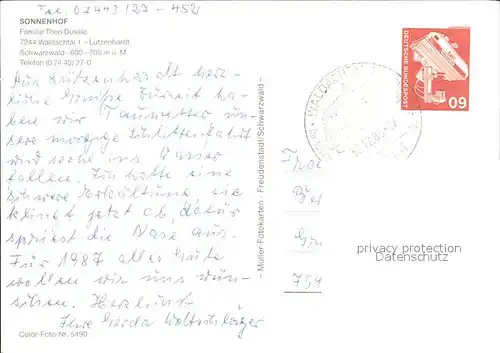 Tel. 07443/27-452
SONNENHOF
Familie Theo Dussle
7244 Waldachtal 1 - Lützenhardt
Schwarzwald - 600-700 m ü. M.
Telefon (0 74 43) 27-0
Aus Lützenhardt herz-
liche Grüße. Zurzeit ha-
ben wir Tauwetter un-
sere morgige Schlittenfahrt
wird wohl ins Wasser
fallen. Ich hatte eine
schwere Erkältung, sie
klingt jetzt ab, dafür
die Nase aus.
Für 1987 alles Gute
wollen wir uns wün-
schen. Herzlichst
Ihre Gerda
Color-Foto-Nr. 5490
- Müller-Fotokarten - Freudenstadt/Schwarzwald -
DEUTSCHE BUNDESPOST
60
WALDACHTAL
privacy protection
Datenschutz